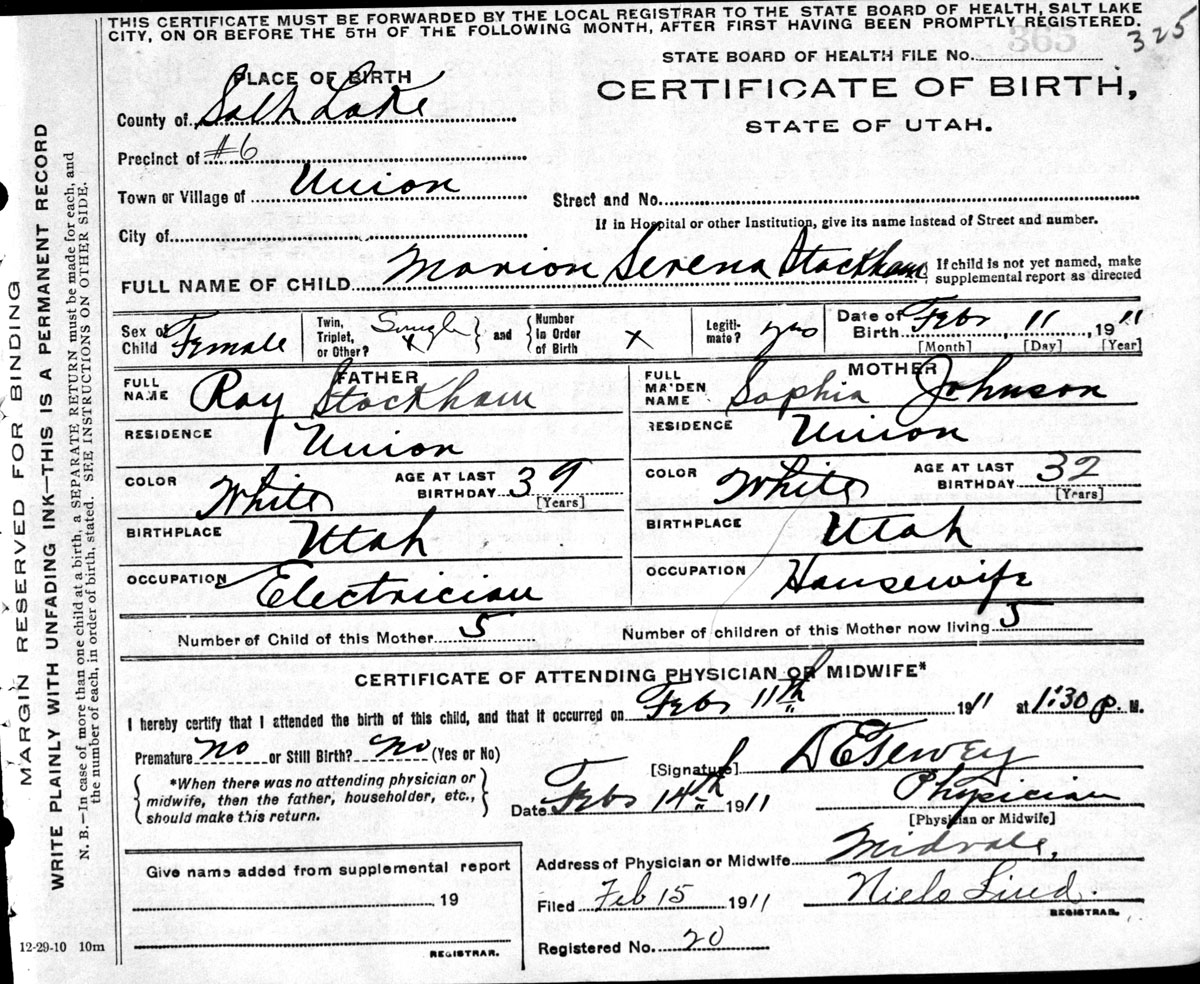 THIS CERTIFICATE MUST BE FORWARDED BY THE LOCAL REGISTRAR TO THE STATE BOARD OF HEALTH, SALT LAKE
CITY, ON OR BEFORE THE 5TH OF THE FOLLOWING MONTH, AFTER FIRST HAVING BEEN PROMPTLY REGISTERED.
325
365
STATE BOARD OF HEALTH FILE No.
CERTIFICATE OF BIRTH,
STATE OF UTAH.
PLACE OF BIRTH
County of Salt Lake
Precinct of #6
Town or Village of Union
Street and No.
If in Hospital or other Institution, give its name instead of Street and number.
City of
FULL NAME OF CHILD Marion Serena Stockham
If child is not yet named, make
supplemental report as directed
Sex of Child Female
Twin, Triplet, or Other? Single X
and
Number in Order of Birth X
Legiti-mate? yes
Date of Birth Feb 11, 1911
[Month] [Day] [Year]
FATHER
FULL NAME Ray Stockham
RESIDENCE Union
COLOR White
AGE AT LAST BIRTHDAY 39
[Years]
BIRTHPLACE Utah
OCCUPATION Electrician
MOTHER
FULL MAIDEN NAME Sophia Johnson
RESIDENCE Union
COLOR White
AGE AT LAST BIRTHDAY 32
[Years]
BIRTHPLACE Utah
OCCUPATION Housewife
Number of Child of this Mother 5
Number of children of this Mother now living 5
CERTIFICATE OF ATTENDING PHYSICIAN OR MIDWIFE*
I hereby certify that I attended the birth of this child, and that it occurred on Feb 11th 1911 at 1:30 p. M.
Premature No or Still Birth? No (Yes or No)
*When there was no attending physician or
midwife, then the father, householder, etc.,
should make this return.
[Signature]
Date Feb 14th 1911
Physician
[Physician or Midwife]
Address of Physician or Midwife Midvale,
Give name added from supplemental report
19
REGISTRAR.
Filed Feb 15 1911
Niels Lind.
REGISTRAR.
Registered No. 20
12-29-10 10m
MARGIN RESERVED FOR BINDING
WRITE PLAINLY WITH UNFADING INK—THIS IS A PERMANENT RECORD
N. B.—In case of more than one child at a birth, a SEPARATE RETURN must be made for each, and
the number of each, in order of birth, stated. SEE INSTRUCTIONS ON OTHER SIDE.